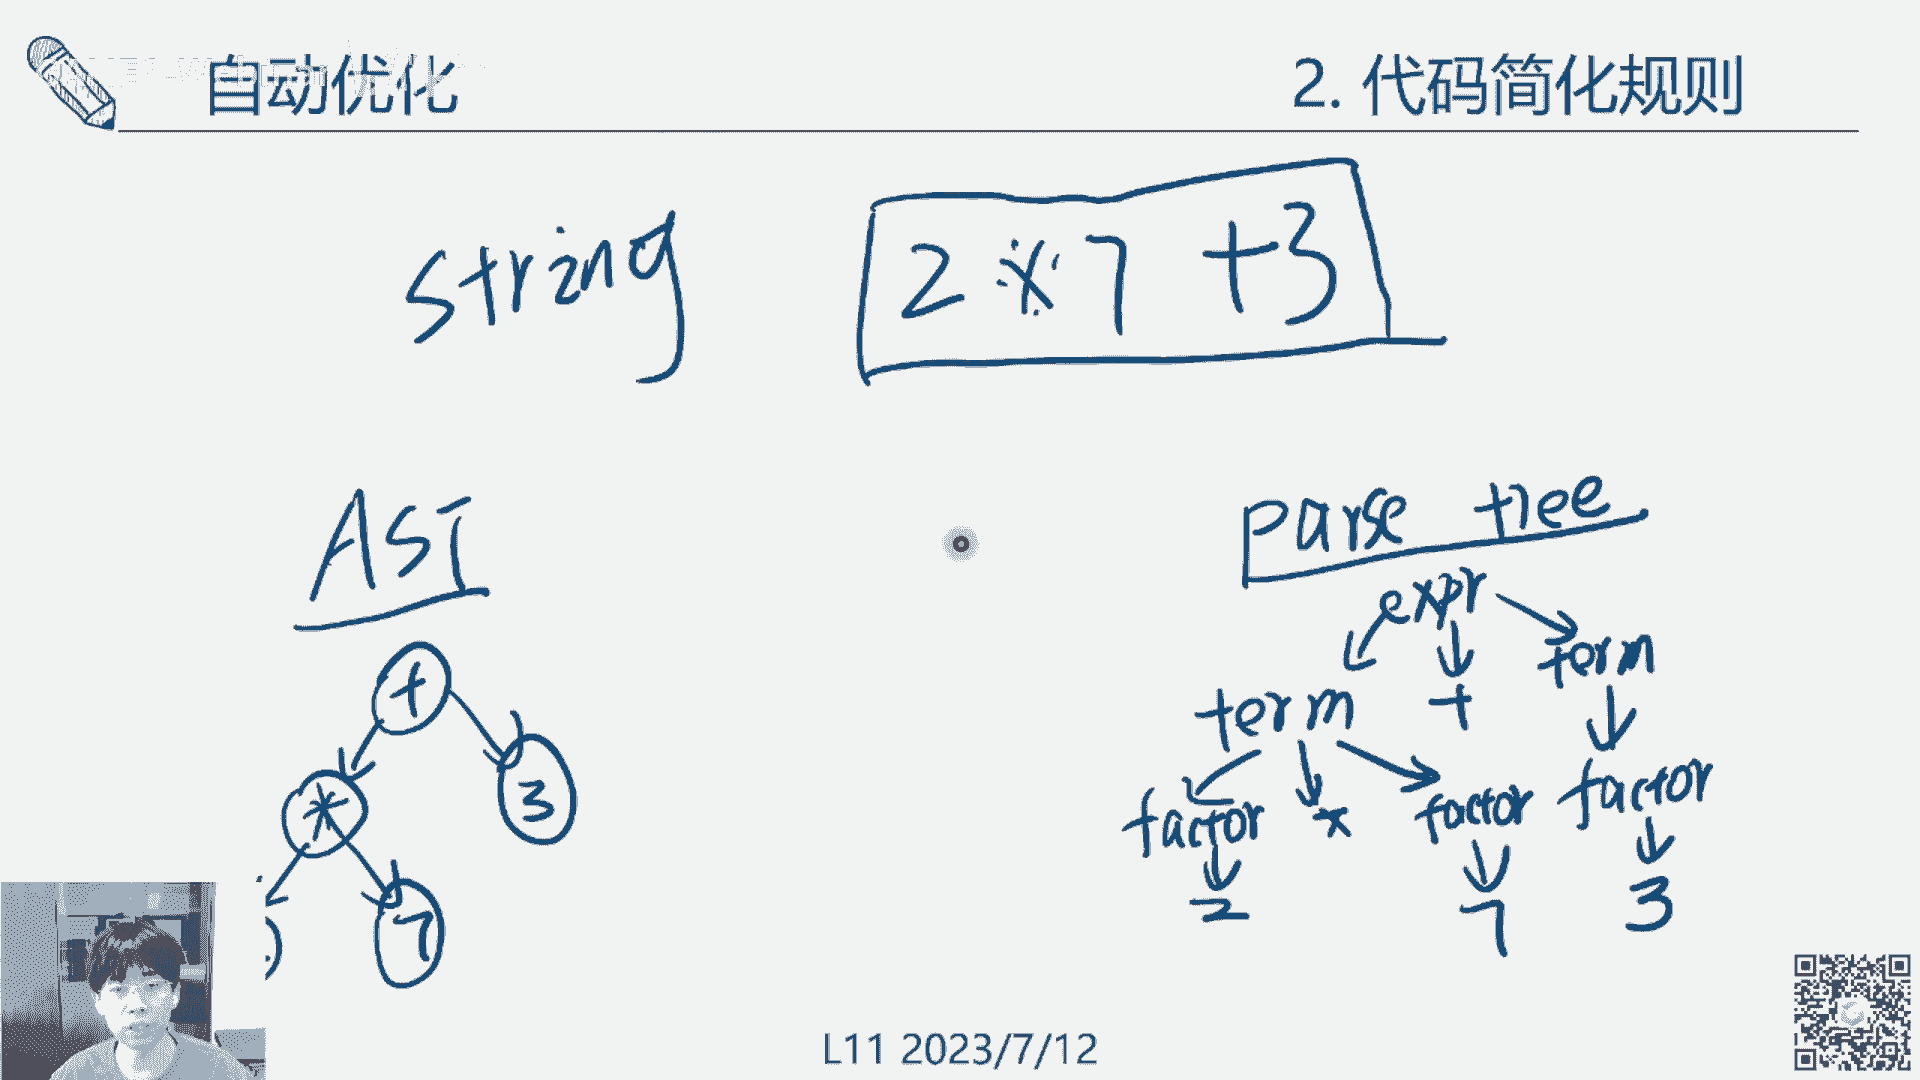 自动优化
2. 代码简化规则
string
2 * 7 + 3
AST
parse tree
expr
+
term + term
* 3
factor * factor factor
7
2 7 3
L11 2023/7/12